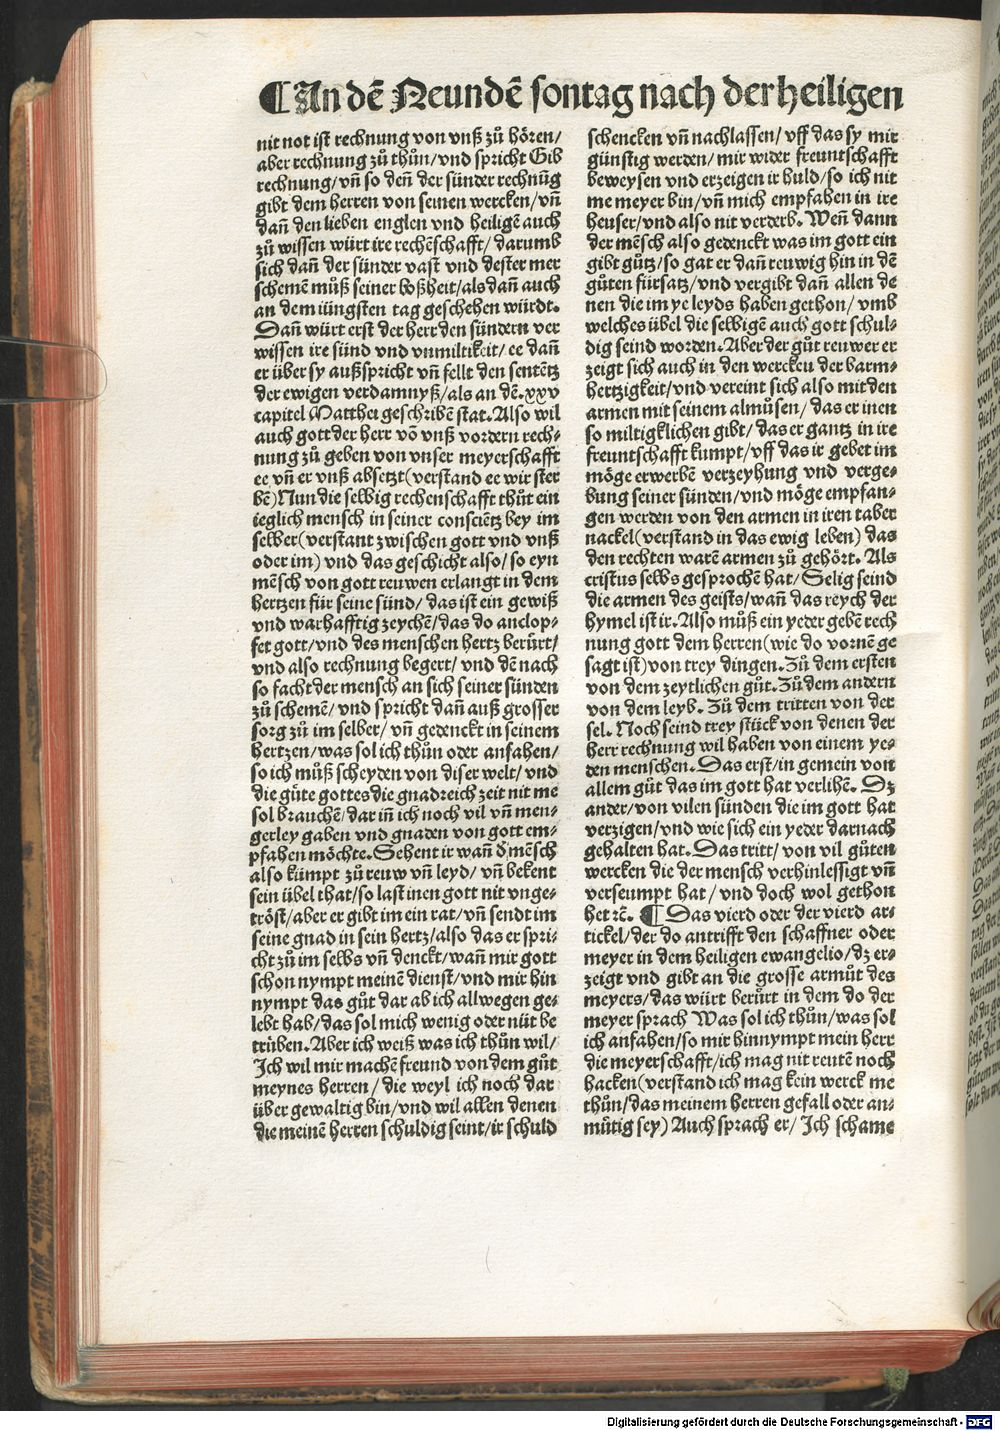 ¶ An dē Neundē sontag nach der heiligen
nit not ist rechnung von vnß zů hören/
aber rechnung zů thůn/vnd spricht Gib
rechnung/vñ so deñ der sünder rechnūg
gibt dem herren von seinen wercken/vñ
dañ den lieben englen vnd heiligē auch
zů wissen würt ire rechēschafft/darumb
sich dañ der sünder vast vnd dester mer
schemē můß seiner boßheit/als dañ auch
an dem iüngsten tag geschehen würdt.
Dañ würt erst der herr den sündern ver
wissen ire sünd vnd vnmiltikeit/ee dañ
er über sy außspricht vñ fellt den sentētz
der ewigen verdamnyß/als an dē.xxv
capitel Matthei geschribē stat. Also wil
auch gott der herr vō vnß vordern rech⸗
nung zů geben von vnser meyerschafft
ee vñ er vnß absetzt(verstand ee wir ster
bē)Nun die selbig rechenschafft thůt ein
ieglich mensch in seiner consciētz bey im
selber(verstant zwischen gott vnd vnß
oder im) vnd das geschicht also/so eyn
mēsch von gott reuwen erlangt in dem
hertzen für seine sünd/das ist ein gewiß
vnd warhafftig zeychē/das do anclop⸗
fet gott/vnd des menschen hertz berürt/
vnd also rechnung begert/vnd dē nach
so facht der mensch an sich seiner sünden
zů schemē/vnd spricht dañ auß grosser
sorg zů im selber/vñ gedenckt in seinem
hertzen/was sol ich thůn oder anfahen/
so ich můß scheyden von diser welt/vnd
die güte gottes die gnadreich zeit nit me
sol brauchē/dar iñ ich noch vil vñ men⸗
gerley gaben vnd gnaden von gott em⸗
pfahen möchte. Sehent ir wañ d̄ mēsch
also kümpt zů reuw vñ leyd/vñ bekent
sein übel that/so last inen gott nit vnge⸗
tröst/aber er gibt im ein rat/vñ sendt im
seine gnad in sein hertz/also das er spri⸗
cht zů im selbs vñ denckt/wañ mir gott
schon nympt meinē dienst/vnd mir hin
nympt das gůt dar ab ich allwegen ge⸗
lebt hab/das sol mich wenig oder nüt be
trüben. Aber ich weiß was ich thůn wil/
Ich wil mir machē freund von dem gůt
meynes herren/die weyl ich noch dar
über gewaltig bin/vnd wil allen denen
die meinē herren schuldig seint/ir schuld
schencken vñ nachlassen/vff das sy mir
günstig werden/mir wider freuntschafft
beweysen vnd erzeigen ir huld/so ich nit
me meyer bin/vñ mich empfahen in ire
heuser/vnd also nit verderb. Weñ dann
der mēsch also gedenckt was im gott ein
gibt gůtz/so gat er dañ reuwig hin in dē
gůten fürsatz/vnd vergibt dañ allen de
nen die im ye leyds haben gethon/vmb
welches übel die selbigē auch gott schul⸗
dig seind worden. Aber der gůt reuwer er
zeigt sich auch in den wercken der barm⸗
hertzigkeit/vnd vereint sich also mit den
armen mit seinem almůsen/das er inen
so miltigklichen gibt/das er gantz in ire
freuntschafft kumpt/vff das ir gebet im
möge erwerbē verzeyhung vnd verge⸗
bung seiner sünden/vnd möge empfan⸗
gen werden von den armen in iren taber
nackel(verstand in das ewig leben) das
den rechten warē armen zů gehört. Als
cristus selbs gesprochē hat/Selig seind
die armen des geists/wañ das reych der
hymel ist ir. Also můß ein yeder gebē rech
nung gott dem herren(wie do vornē ge
sagt ist)von trey dingen. Zů dem ersten
von dem zeytlichen gůt. Zů dem andern
von dem leyb. Zů dem tritten von der
sel. Noch seind trey stück von denen der
herr rechnung wil haben von einem ye⸗
den menschen. Das erst/in gemein von
allem gůt das im gott hat verlihē. Dz
ander/von vilen sünden die im gott hat
verzigen/vnd wie sich ein yeder darnach
gehalten hat. Das tritt/von vil gůten
wercken die der mensch verhinlessigt vñ
verseumpt hat/vnd doch wol gethon
het ꝛc̄. ¶ Das vierd oder der vierd ar⸗
tickel/der do antrifft den schaffner oder
meyer in dem heiligen ewangelio/dz er⸗
zeigt vnd gibt an die grosse armůt des
meyers/das würt berürt in dem do der
meyer sprach Was sol ich thůn/was sol
ich anfahen/so mir hinnympt mein herr
die meyerschafft/ich mag nit reutē noch
hacken(verstand ich mag kein werck me
thůn/das meinem herren gefall oder an⸗
mütig sey) Auch sprach er/Ich schame
Digitalisierung gefördert durch die Deutsche Forschungsgemeinschaft - DFG